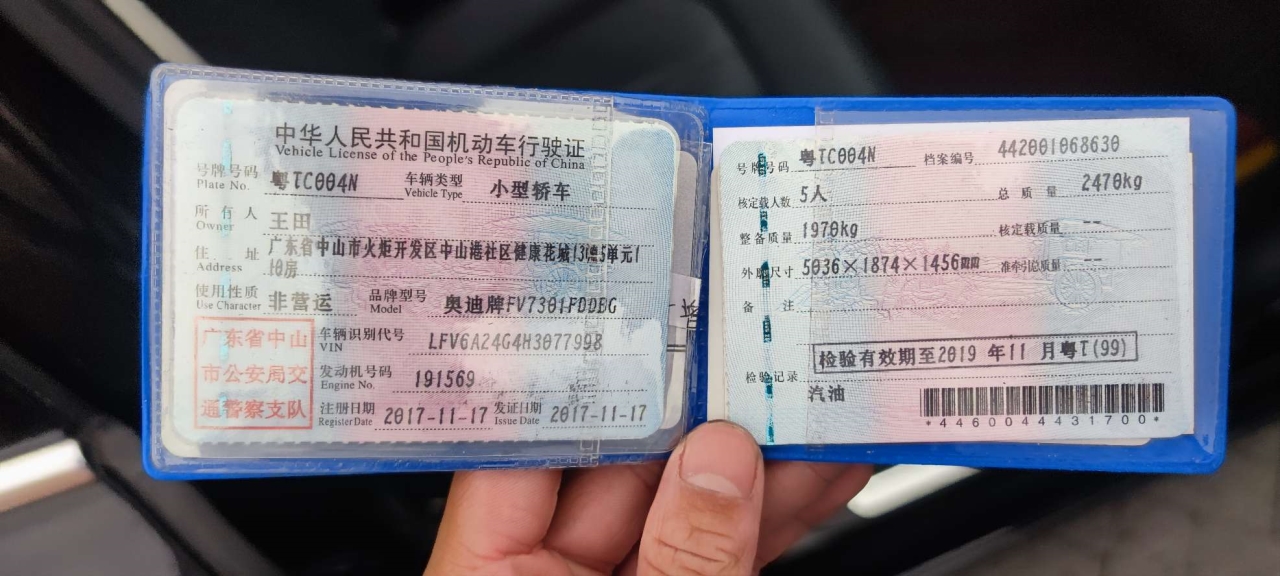 中华人民共和国机动车行驶证
Vehicle License of the People's Republic of China
号牌号码 粤TC004N 车辆类型 小型轿车
Plate No. Vehicle Type
所有人 王田
Owner
住址 广东省中山市火炬开发区中山港社区健康花城13幢5单元1
Address 10房
使用性质 非营运 品牌型号 奥迪牌FV7301FDDBG
Use Character Model
广东省中山
市公安局交
通警察支队
车辆识别代号 LFV6A24G4H3077998
VIN
发动机号码 191569
Engine No.
注册日期 2017-11-17 发证日期 2017-11-17
Register Date Issue Date
号牌号码 粤TC004N 档案编号 442001068630
核定载人数 5人 总质量 2470kg
整备质量 1970kg 核定载质量 --
外廓尺寸 5036×1874×1456mm 准牵引总质量 --
备注
检验有效期至2019 年11 月粤T(99)
检验记录
汽油
*4460044431700*